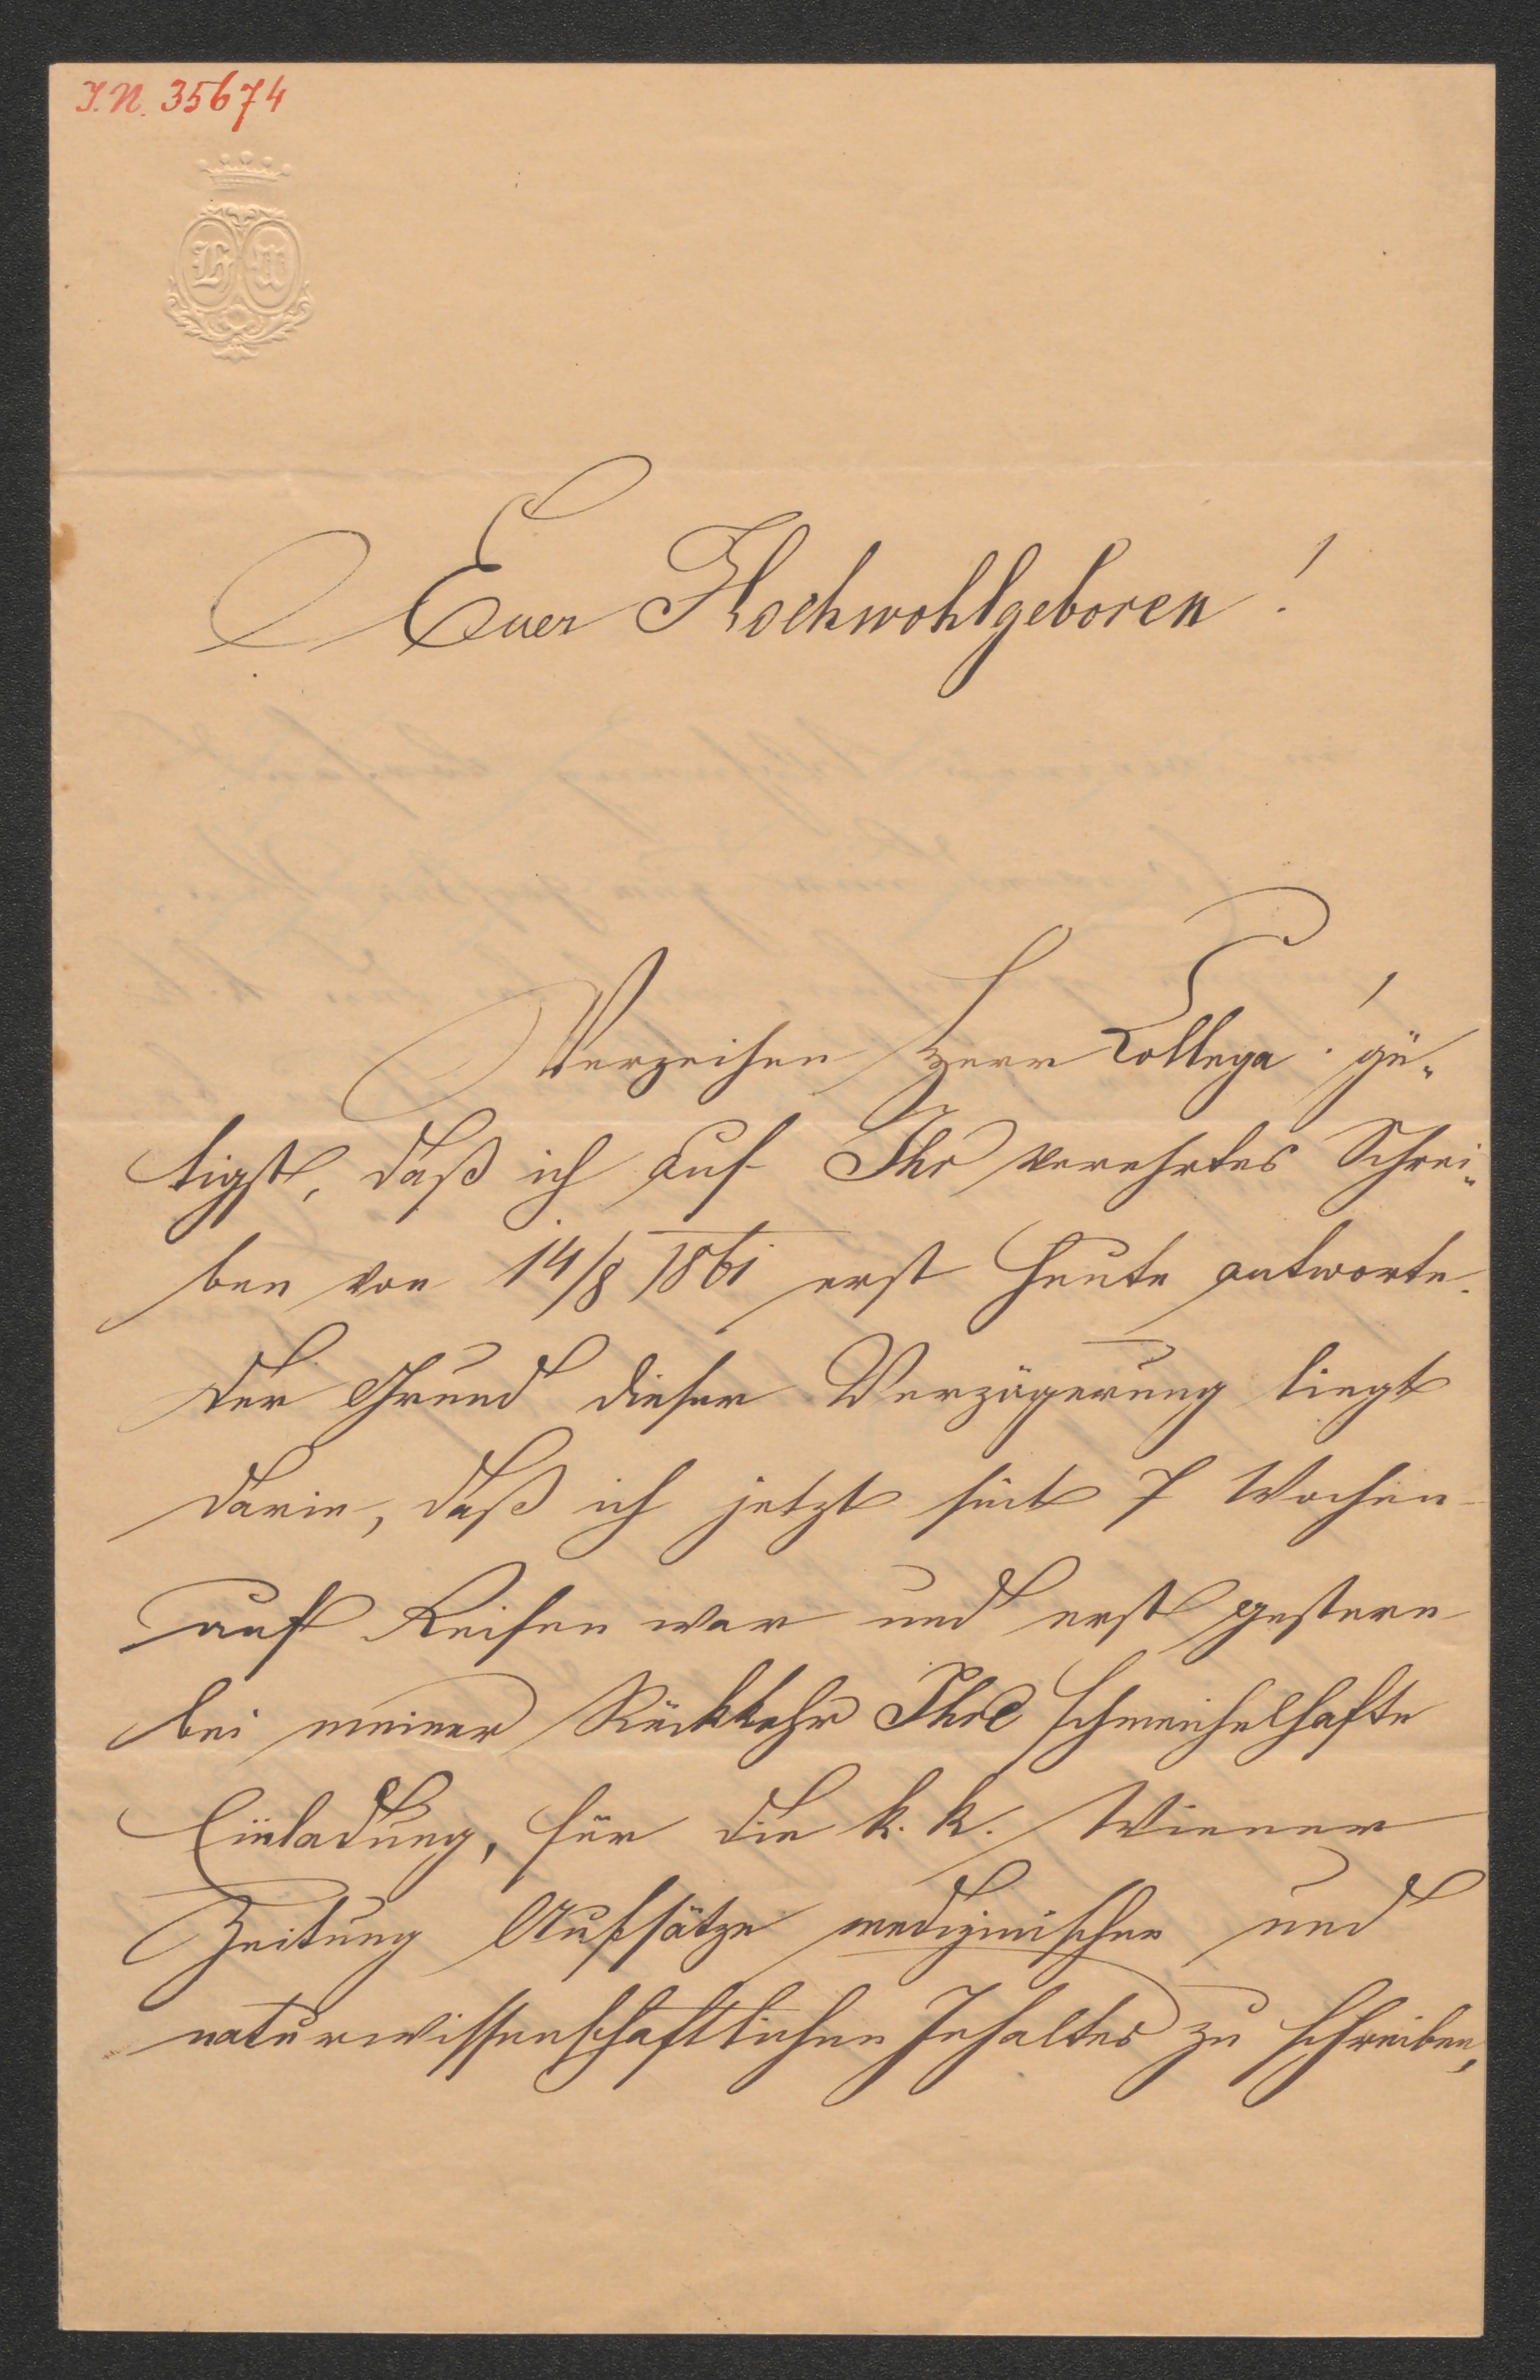 I.N. 35674
H W
Euer Hochwohlgeboren!
Verzeihen Herr Collega! gü-
tigst, daß ich auf Ihr verehrtes Schrei-
ben von 14/8 1861 erst heute antworte.
Der Grund dieser Verzögerung liegt
darin, daß ich jetzt seit 7 Wochen
auf Reisen war und erst gestern
bei meiner Rückkehr Ihre schmeichelhafte
Einladung, für die k. k. Wiener
Zeitung Aufsätze medizinischen und
naturwissenschaftlichen Inhaltes zu schreiben,